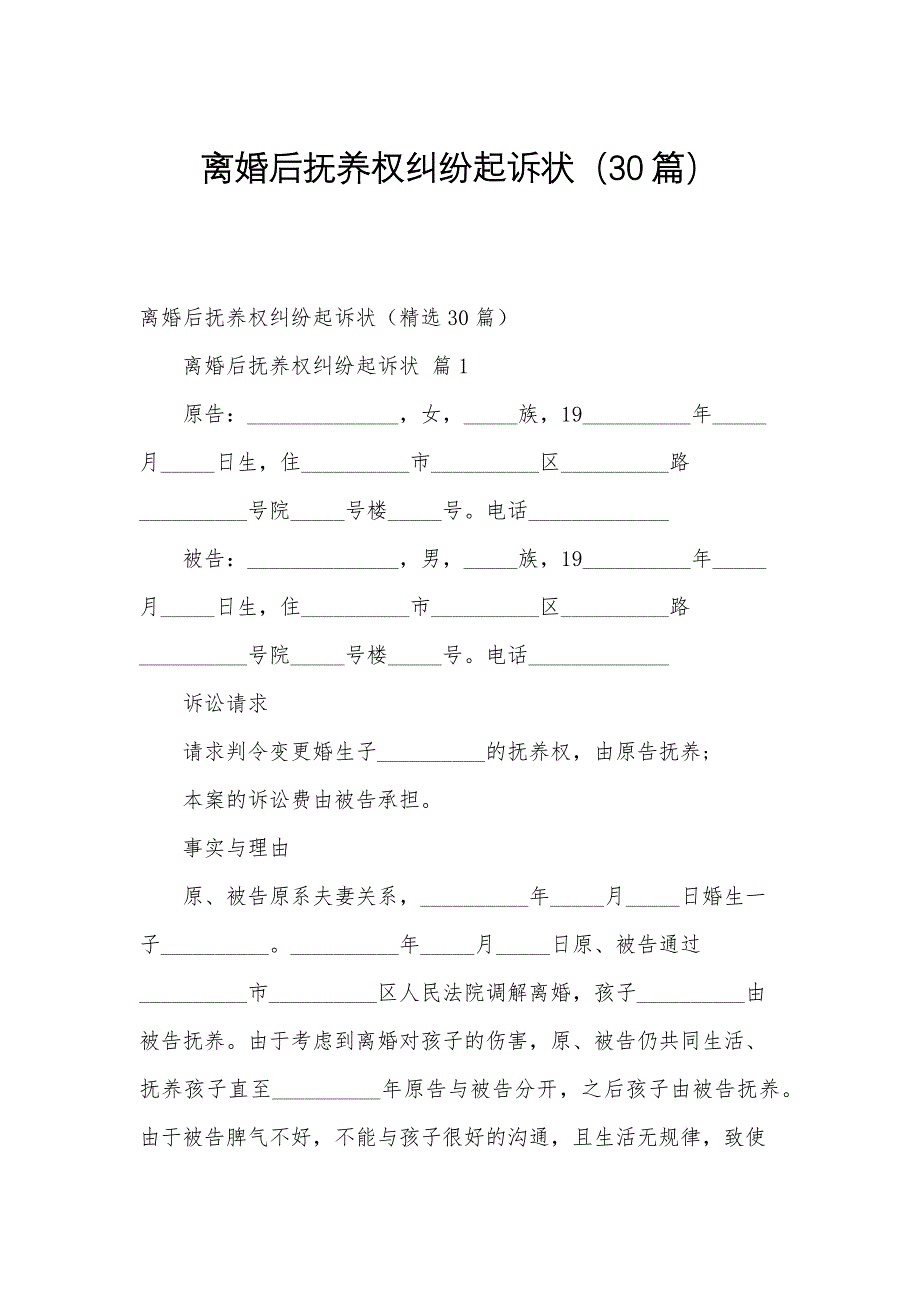 离婚后抚养权纠纷起诉状（30篇）
离婚后抚养权纠纷起诉状（精选30篇）
离婚后抚养权纠纷起诉状 篇1
原告：______________，女，_____族，19__________年_____
月_____日生，住__________市__________区__________路
__________号院_____号楼_____号。电话_____________
被告：______________，男，_____族，19__________年_____
月_____日生，住__________市__________区__________路
__________号院_____号楼_____号。电话_____________
诉讼请求
请求判令变更婚生子__________的抚养权，由原告抚养;
本案的诉讼费由被告承担。
事实与理由
原、被告原系夫妻关系，__________年_____月_____日婚生一
子__________。__________年_____月_____日原、被告通过
__________市__________区人民法院调解离婚，孩子__________由
被告抚养。由于考虑到离婚对孩子的伤害，原、被告仍共同生活、
抚养孩子直至__________年原告与被告分开，之后孩子由被告抚养。
由于被告脾气不好，不能与孩子很好的沟通，且生活无规律，致使